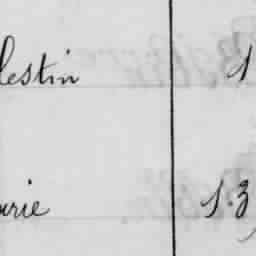 lestin 1
urie 1.3